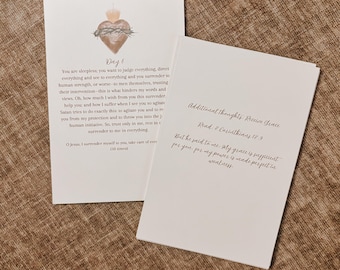 Day 8
You are sleepless; you want to judge everything, direct
everything and see to everything and you surrender to
human strength, or worse—to men themselves, trusting
their intervention—this is what hinders my words and
views. Oh, how much I wish from you this surrender
help you and how I suffer when I see you so agitated
Satan tries to do exactly this: to agitate you and to
you from my protection and to throw you into the
human initiative. So, trust only in me, rest in
surrender to me in everything.
O Jesus, I surrender myself to you, take care of
(10 times)
Additional thoughts: Divine Grace
Read: 2 Corinthians 12:9
But he said to me, "My grace is sufficient
for you, for my power is made perfect in
weakness.